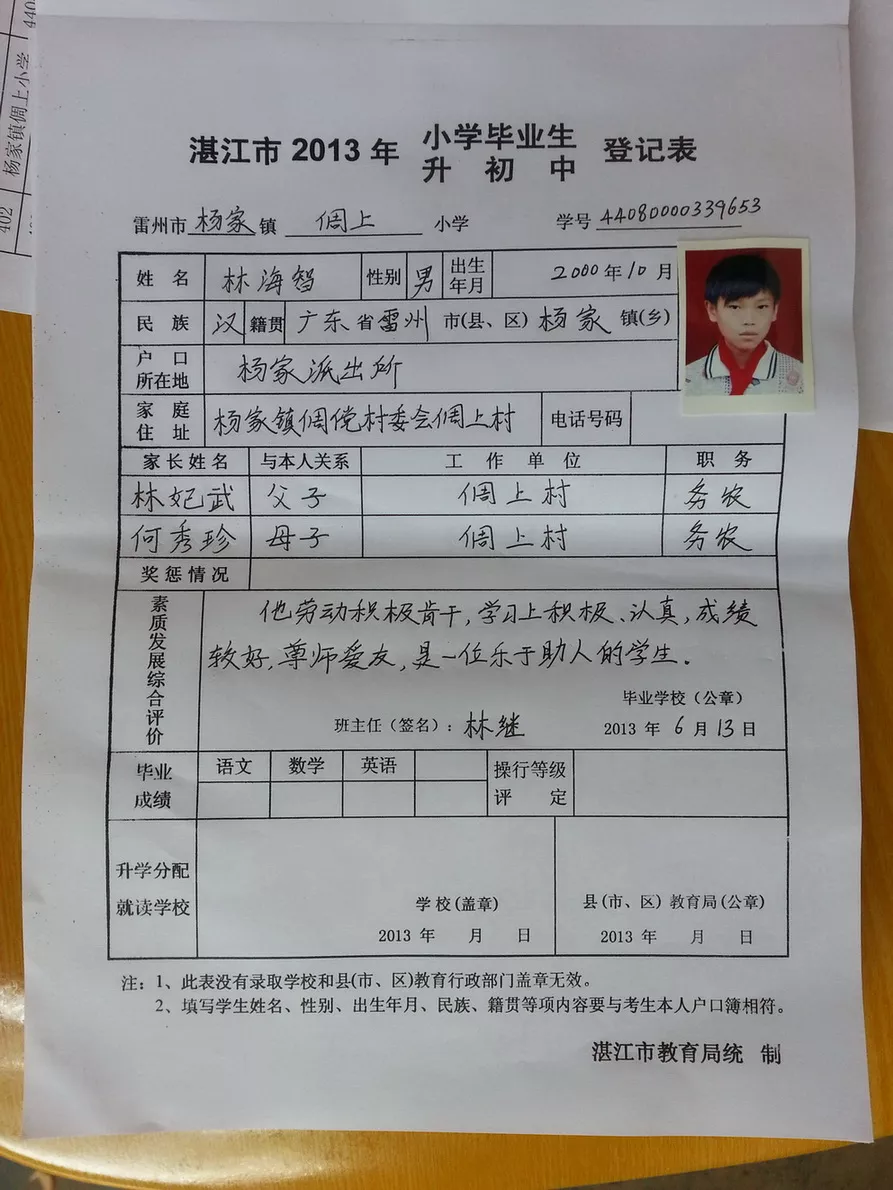 杨家镇倜上小学
402
湛江市 2013 年 小学毕业生 登记表
升 初 中
雷州市 杨家 镇 倜上 小学 学号 44080000339653
姓 名 林海智 性别 男 出生年月 2000 年 10 月
民 族 汉 籍贯 广东 省 雷州 市(县、区) 杨家 镇(乡)
户 口 所在地 杨家派出所
家 庭 住 址 杨家镇倜傥村委会倜上村 电话号码
家长姓名 与本人关系 工 作 单 位 职 务
林妃武 父子 倜上村 务农
何秀珍 母子 倜上村 务农
奖惩情况
素质发展综合评价
他劳动积极肯干,学习上积极、认真,成绩
较好,尊师爱友,是一位乐于助人的学生.
毕业学校(公章)
班主任(签名):林继 2013 年 6 月 13 日
毕业成绩 语文 数学 英语 操行等级评 定
升学分配
就读学校
学 校(盖章) 县(市、区)教育局(公章)
2013 年 月 日 2013 年 月 日
注:1、此表没有录取学校和县(市、区)教育行政部门盖章无效。
2、填写学生姓名、性别、出生年月、民族、籍贯等项内容要与考生本人户口簿相符。
湛江市教育局统 制